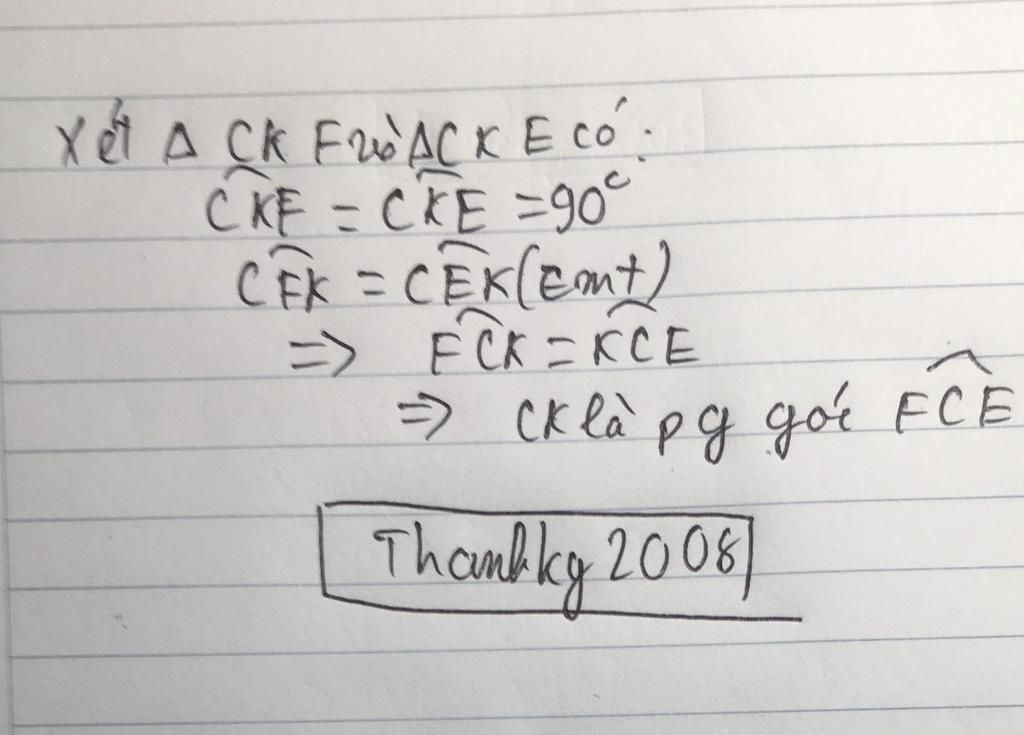 Xét Δ CKF và ΔCKE có:
$\widehat{CKF}$ = $\widehat{CKE}$ = 90°
$\widehat{CFK}$ = $\widehat{CEK}$ (cmt)
=> $\widehat{FCK}$ = $\widehat{KCE}$
=> CK là pg góc $\widehat{FCE}$
Thanhky2008